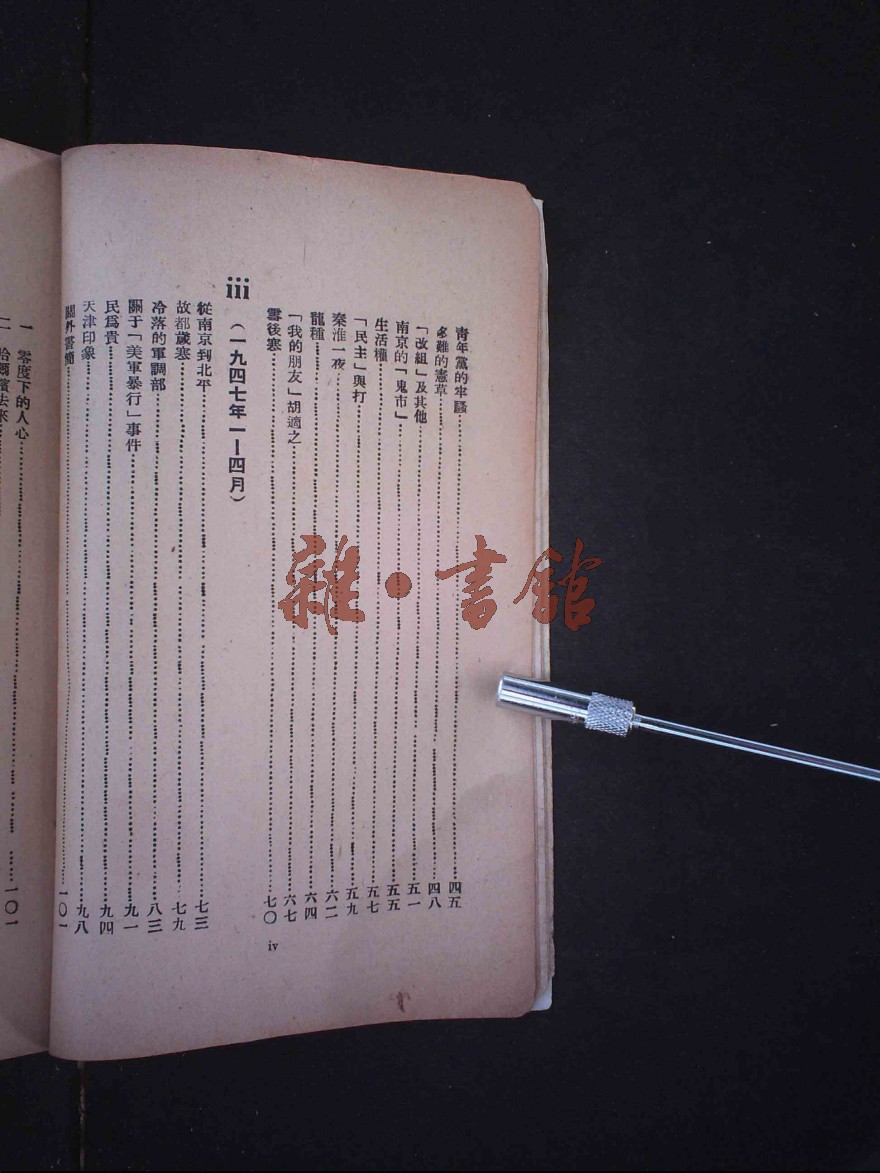 青年黨的牢騷……四五
多難的憲草……四八
「改組」及其他……五一
南京的「鬼市」……五五
生活權……五七
「民主」與打……五九
秦淮一夜……六二
龍種……六四
「我的朋友」胡適之……六七
雪後寒……七〇
iii （一九四七年一—四月）
從南京到北平……七三
故都歲寒……七九
冷落的軍調部……八三
關于「美軍暴行」事件……九一
民為貴……九四
天津印象……九八
關外書簡……一〇一
一 零度下的人心……一〇一
二 哈爾濱去來……
iv
雜·書館